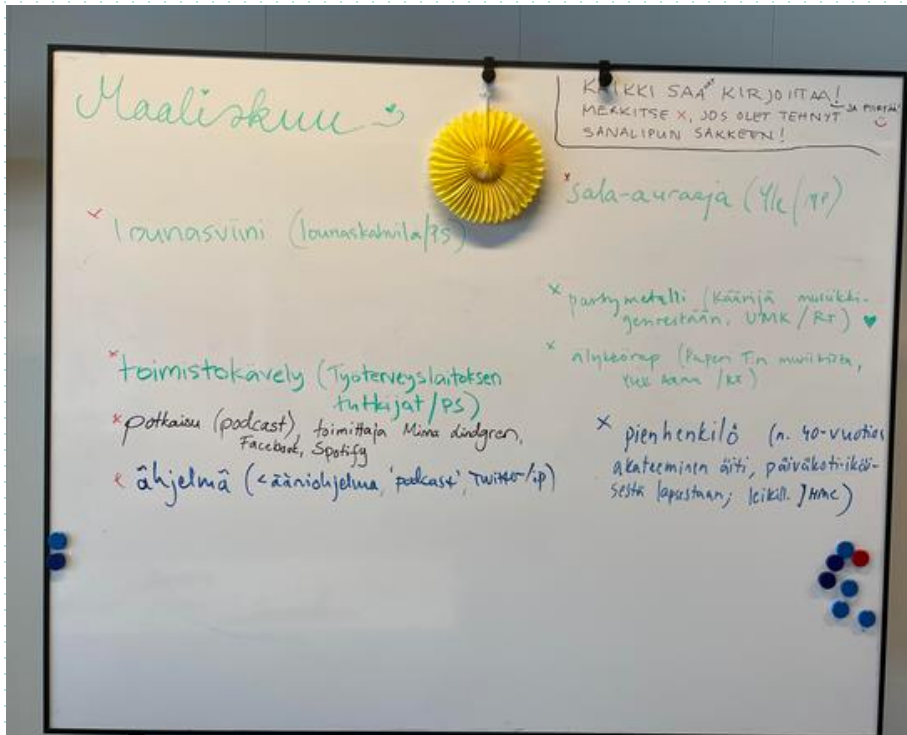 Maaliskuu
KAIKKI SAA KIRJOITTAA!
JA PIIRTÄÄ
MERKITSE X, JOS OLET TEHNYT
SANALIPUN SÄKKEEN!
x sala-auraaja (Yle/
x lounasviini (lounaskahvila/PS)
x partymetalli (Käärijä musiikki-
genrestään, UMK/RT)
x älykkörap (Paperi T:n musiikista,
/RT)
x toimistokävely (Työterveyslaitoksen
tutkijat/PS)
x potkaisu (podcast), toimittaja Minna Lindgren,
Facebook, Spotify
x ähjelmä (< ääniohjelma, 'podcast', Twitter/ip)
x pienhenkilö (n. 40-vuotias
akateeminen äiti, päiväkoti-ikäi-
sestä lapsestaan; leikill. / HMC)